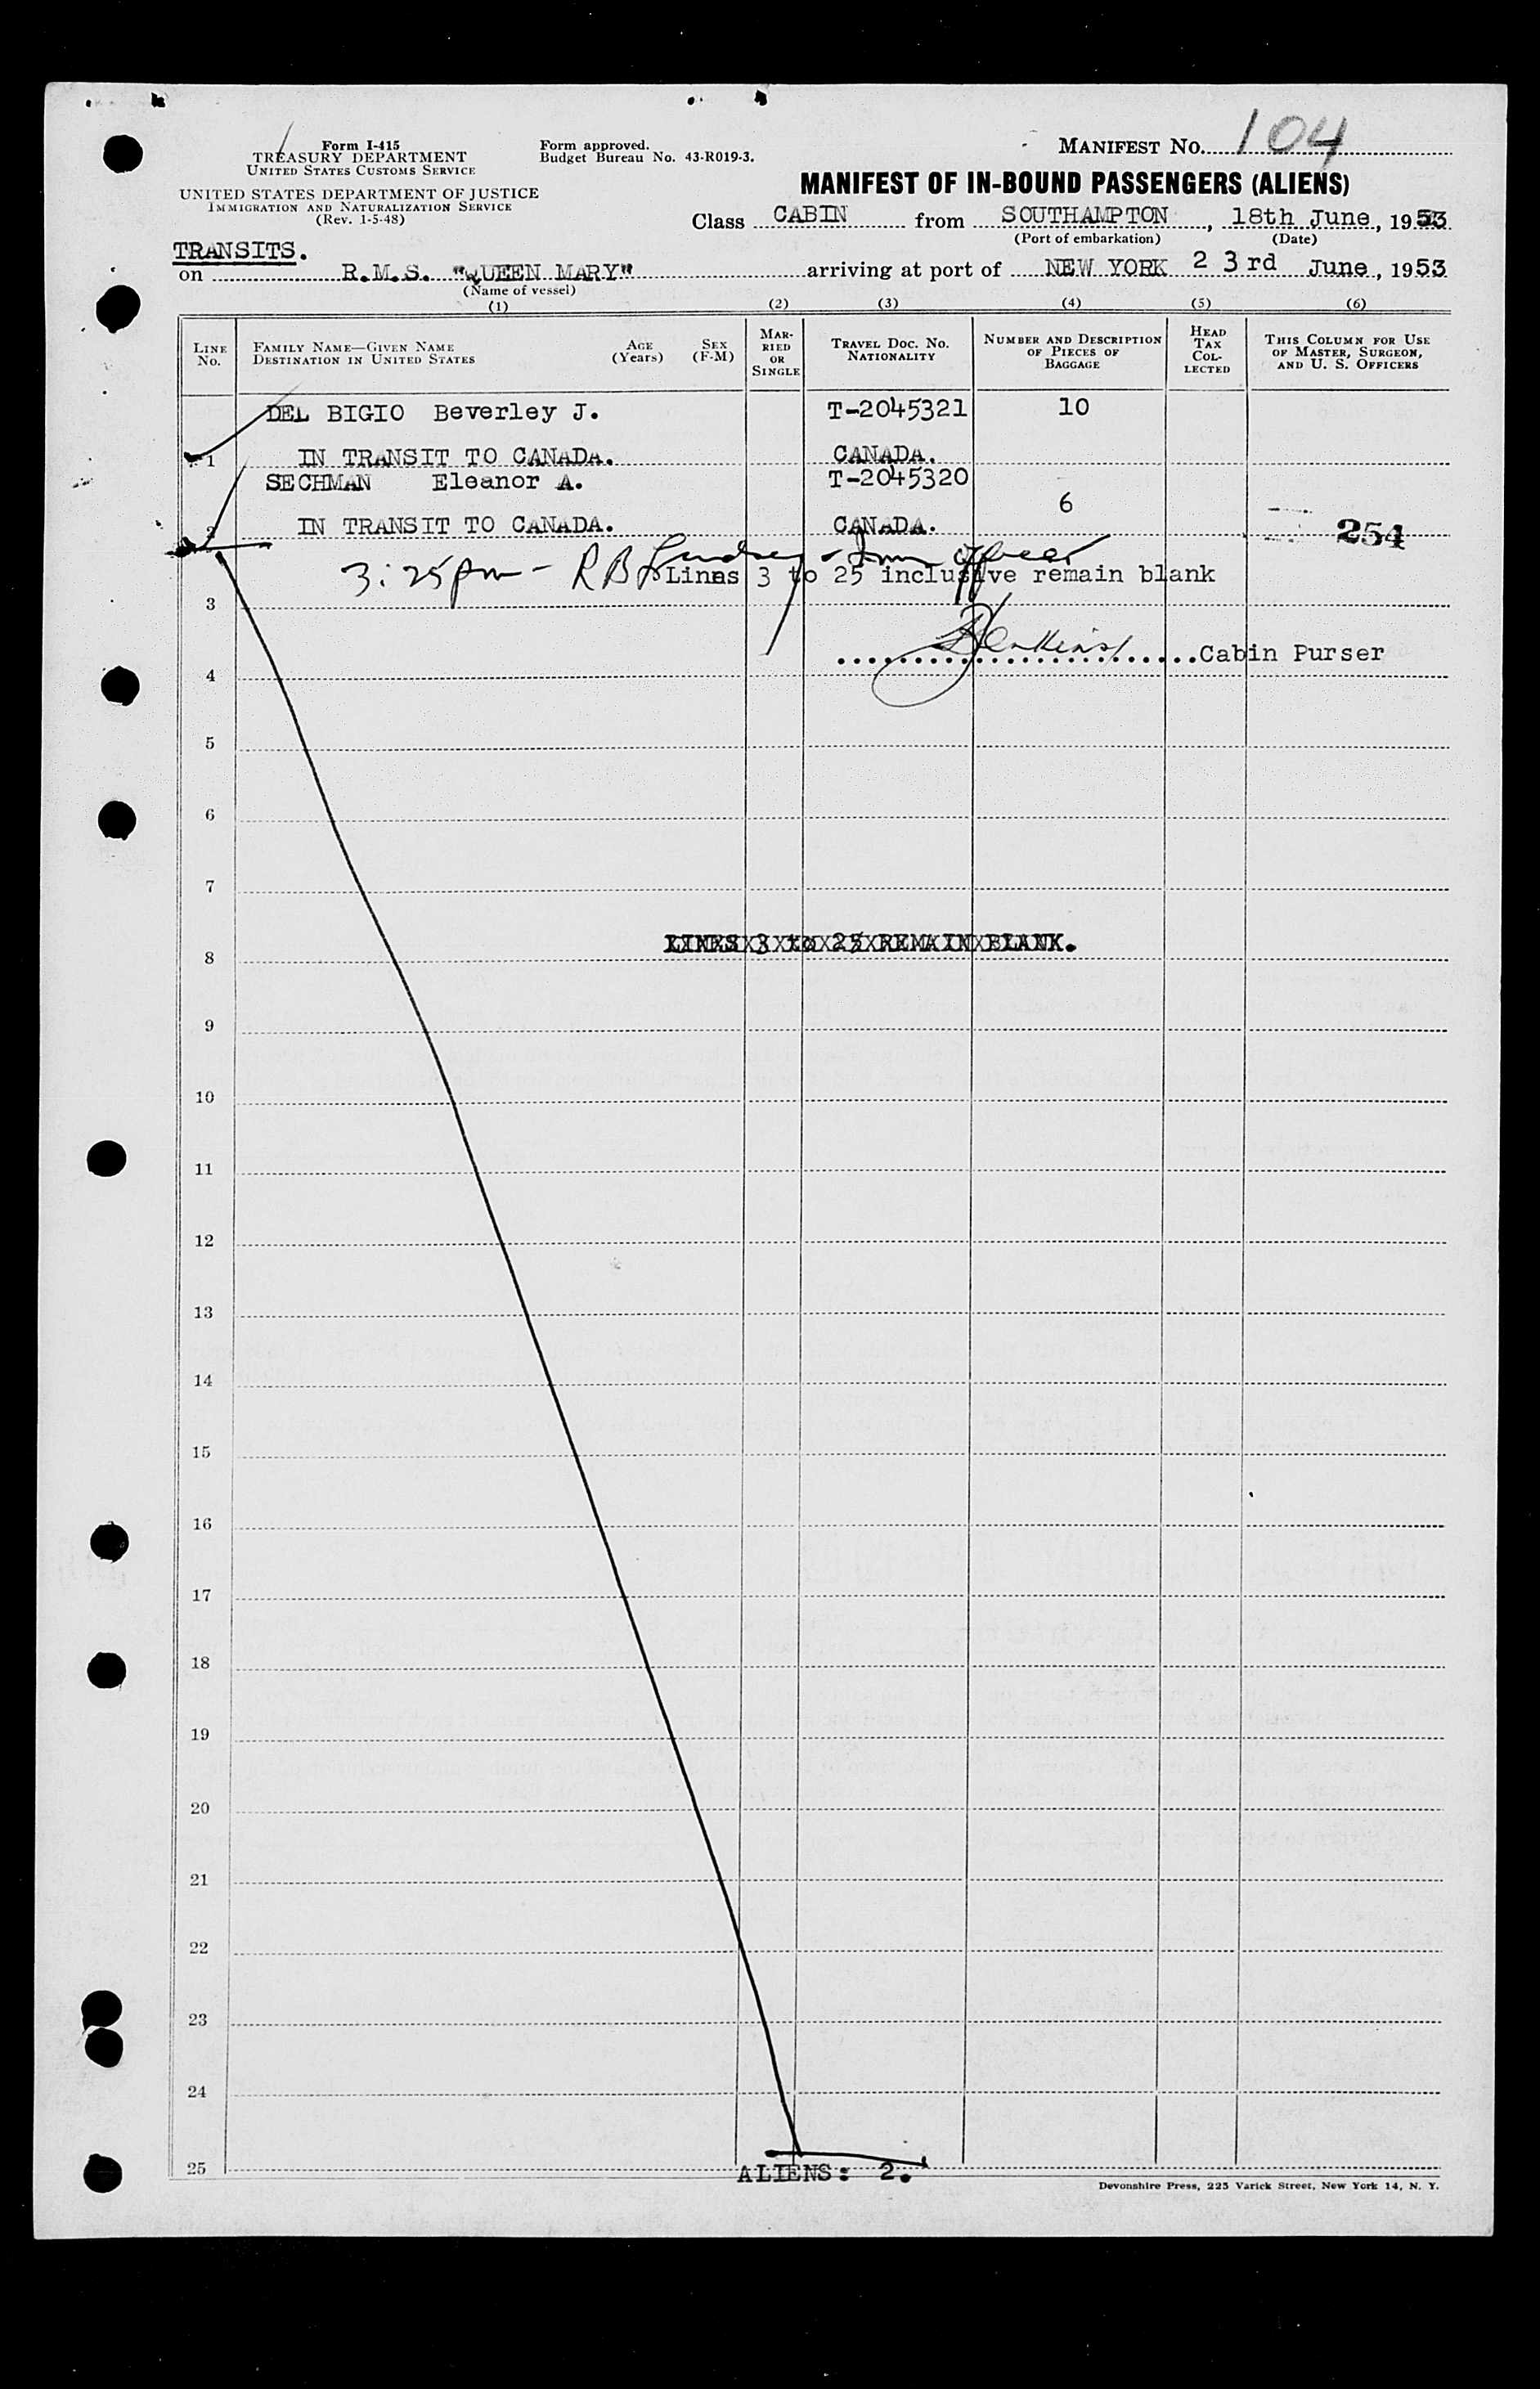 Form I-415
TREASURY DEPARTMENT
UNITED STATES CUSTOMS SERVICE
UNITED STATES DEPARTMENT OF JUSTICE
IMMIGRATION AND NATURALIZATION SERVICE
(Rev. 1-5-48)
Form approved.
Budget Bureau No. 43-R019-3.
MANIFEST NO. 104
MANIFEST OF IN-BOUND PASSENGERS (ALIENS)
Class CABIN from SOUTHAMPTON, 18th June, 1953
(Port of embarkation) (Date)
TRANSITS.
on R.M.S. "QUEEN MARY" arriving at port of NEW YORK 23rd June, 1953
(Name of vessel)
(1) (2) (3) (4) (5) (6)
LINE No. FAMILY NAME—GIVEN NAME DESTINATION IN UNITED STATES AGE (Years) SEX (F-M) MARRIED OR SINGLE TRAVEL DOC. NO. NATIONALITY NUMBER AND DESCRIPTION OF PIECES OF BAGGAGE HEAD TAX COLLECTED THIS COLUMN FOR USE OF MASTER, SURGEON, AND U. S. OFFICERS
DEL BIGIO Beverley J. T-2045321 10
1 IN TRANSIT TO CANADA. CANADA.
SECHMAN Eleanor A. T-2045320
6
2 IN TRANSIT TO CANADA. CANADA. 254
3:25pm - R B Lindsey - Imm officer
Lines 3 to 25 inclusive remain blank
3
Jenkins Cabin Purser
4
5
6
7
LINES 3 to 25 REMAIN BLANK.
8
9
10
11
12
13
14
15
16
17
18
19
20
21
22
23
24
25
ALIENS: 2.
Devonshire Press, 225 Varick Street, New York 14, N. Y.